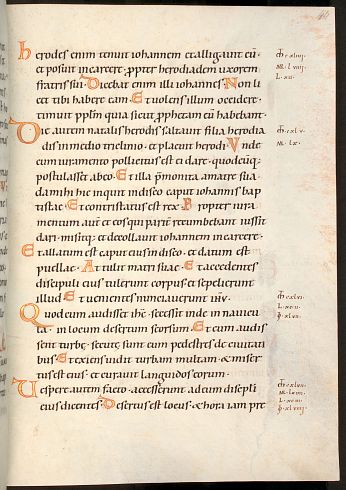 herodes enim tenuit iohannem et alligauit eū·
et posuit incarcere· ꝓpter herodiadem uxorem
fratris sui· Dicebat enim illi iohannes· Non li
cet tibi habere eam· Et uolens illum occidere·
timuit pplm quia sicut ꝓphetam eū habebant·
Die autem natalis herodis saltauit filia herodia
dis in medio triclinio· et placuit herodi· Vnde
cum iuramento pollicitus est ei dare· quodcūq;
postulasset abeo· Et illa p̄monita amatre sua·
da mihi hic inquit indisco caput iohannis bap
tistae· Et contristatus est rex· Propter iura
mentum autē et eos qui pariť recumbebant iussit
dari· misitq; et decollauit iohannem incarcere·
Et allatum est caput eius indisco· et datum est
puellae· Attulit matri suae· Et accedentes
discipuli eius tulerunt corpus· et sepelierunt
illud· Et uenientes nunciauerunt iħu·
Quod cum audisset ihc· secessit inde in nauicu
la· in locum desertum seorsum· Et cum audis
sent turbę· secutę sunt eum pedestres de ciuitati
bus· Et exiens uidit turbam multam· et miser
tus est eius· et curauit languidos eorum·
Vespere autem facto· accesserunt ad eum discipli
eius dicentes· Desertus est locus· et hora iam pre